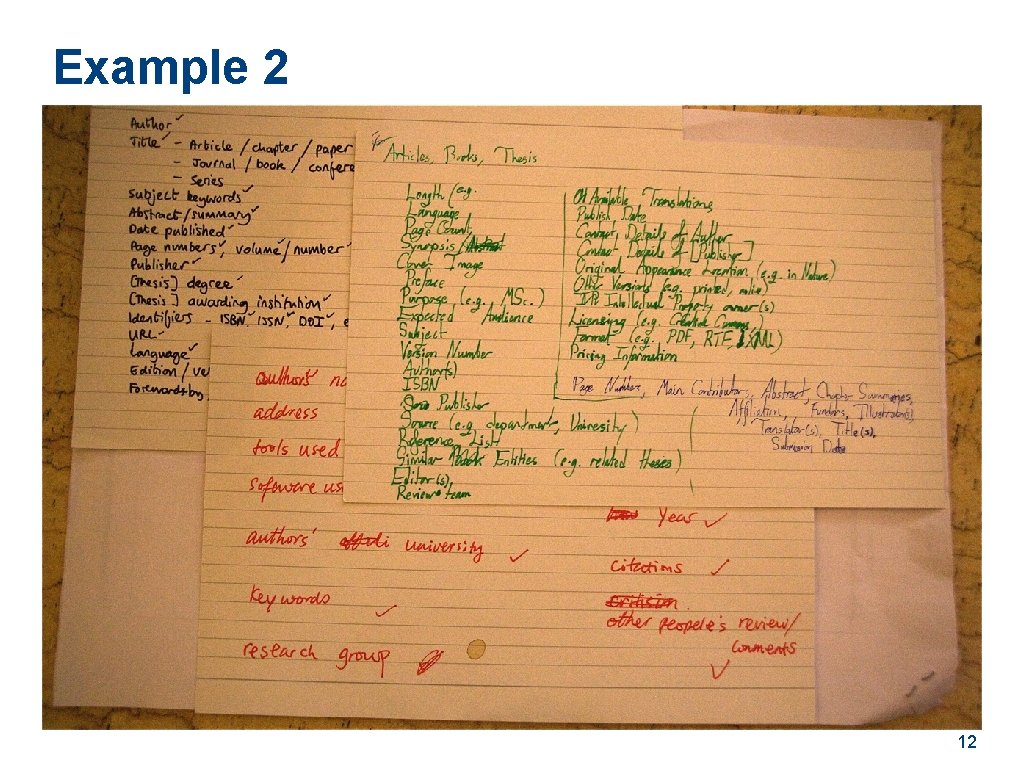 Example 2
Author ✓
Title ✓ - Article / chapter / paper
- Journal / book / confere
- Series
Subject keywords ✓
Abstract/summary ✓
Date published ✓
Page numbers ✓, volume ✓/ number ✓
Publisher ✓
[Thesis] degree ✓
[Thesis] awarding institution ✓
Identifiers - ISBN ✓, ISSN ✓, DOI ✓,
URL ✓
Language ✓
Edition / ve
Foreword by
Articles, Books, Thesis
Length (e.g.
Language
Page Count
Synopsis/
Cover Image
Preface
Purpose (e.g., MSc.)
Expected Audience
Subject
Version Number
Author(s)
ISBN
Publisher
Source (e.g. department, University)
Reference List
Similar Entities (e.g. related theses)
Editor(s),
Review team
Available Translations
Publish Date
Contact Details of Author
Contact Details of [Publisher]
Original Appearance Location (e.g. in Nature)
Other Versions (e.g. printed, audio)
IPR Intellectual Property owner(s)
Licensing (e.g. Creative Commons)
Format (e.g. PDF, RTF, XML)
Pricing Information
Page Number, Main Contributor, Abstract, Chapter Summaries,
Affiliation, Funders, Illustrator(s)
Translator(s), Title(s),
Submission Date
authors' na
address
tools used
software us
authors' university ✓
key words ✓
research group
Year ✓
citations ✓
other people's review/
comments ✓
12